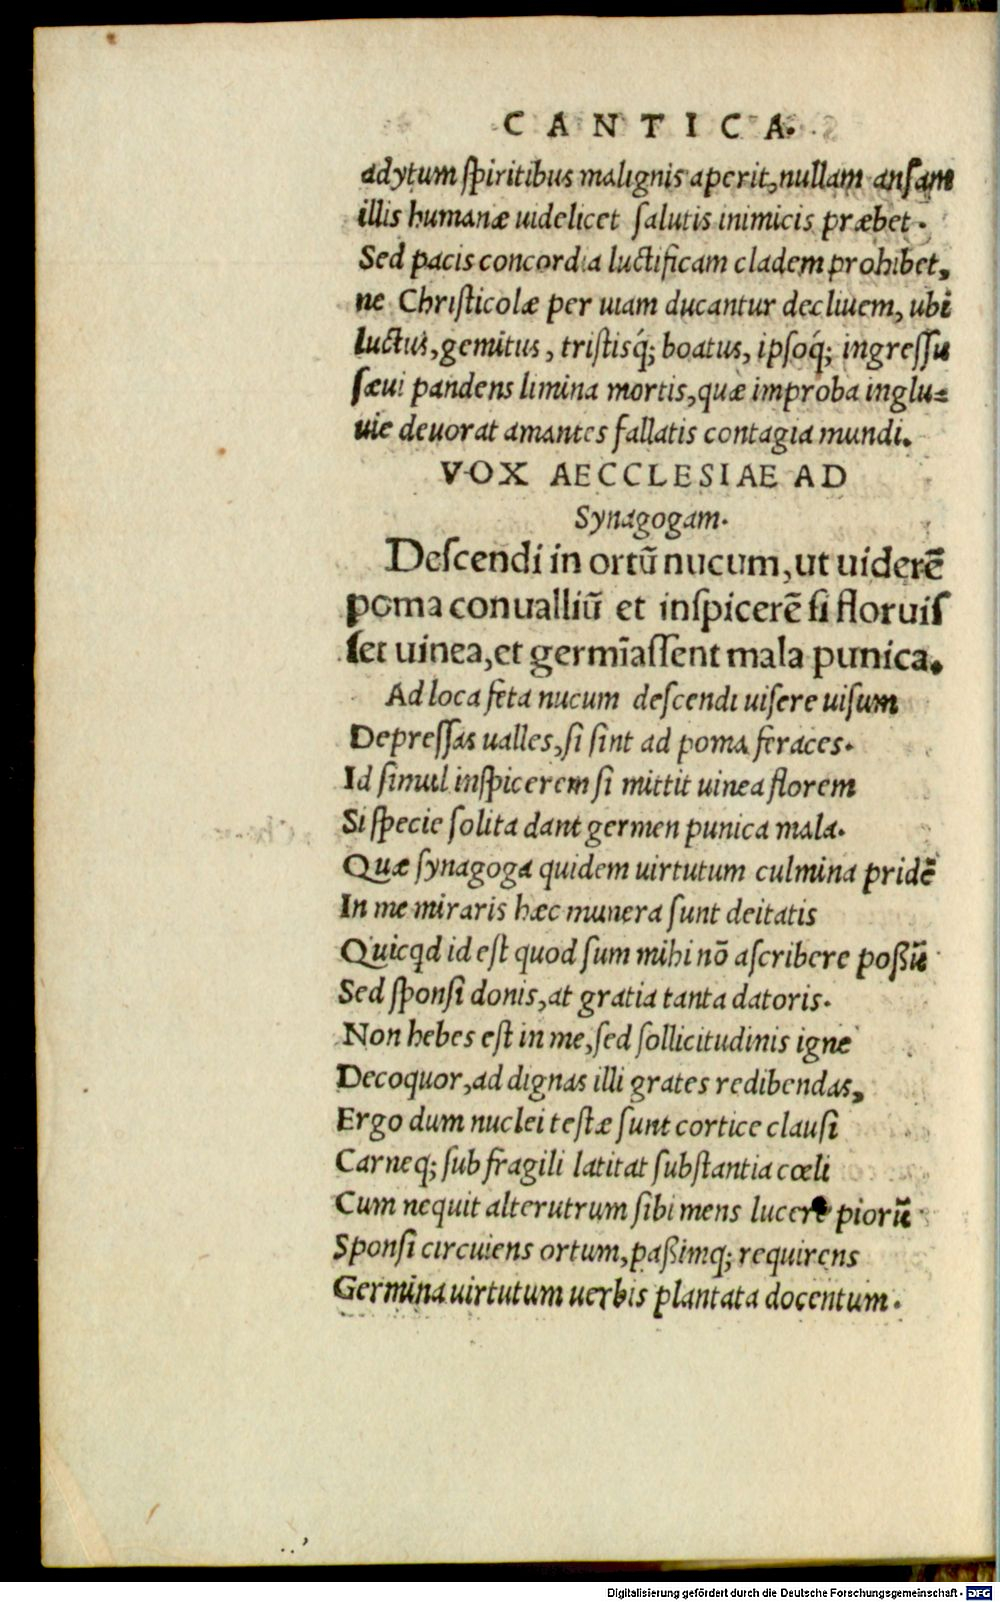 CANTICA.
adytum ſpiritibus malignis aperit, nullam anſam
illis humanæ uidelicet ſalutis inimicis præbet.
Sed pacis concordia luctificam cladem prohibet,
ne Chriſticolæ per uiam ducantur decliuem, ubi
luctus, gemitus, triſtisq́; boatus, ipſoq́; ingreſſu
ſæui pandens limina mortis, quæ improba inglu=
uie deuorat amantes fallatis contagia mundi.
VOX AECCLESIAE AD
Synagogam.
Deſcendi in ortū nucum, ut uiderē
poma conualliū et inſpicerē ſi floruiſ
ſet uinea, et germīaſſent mala punica.
Ad loca feta nucum deſcendi uiſere uiſum
Depreſſas ualles, ſi ſint ad poma feraces.
Id ſimul inſpicerem ſi mittit uinea florem
Si ſpecie ſolita dant germen punica mala.
Quæ ſynagoga quidem uirtutum culmina pridē
In me miraris hæc munera ſunt deitatis
Quicqd id eſt quod ſum mihi nō aſcribere poßū
Sed ſponſi donis, at gratia tanta datoris.
Non hebes eſt in me, ſed ſollicitudinis igne
Decoquor, ad dignas illi grates redibendas,
Ergo dum nuclei teſtæ ſunt cortice clauſi
Carneq; ſub fragili latitat ſubſtantia cœli
Cum nequit alterutrum ſibi mens lucere piorū
Sponſi circuiens ortum, paßimq; requirens
Germina uirtutum uerbis plantata docentum.
Digitalisierung gefördert durch die Deutsche Forschungsgemeinschaft - DFG